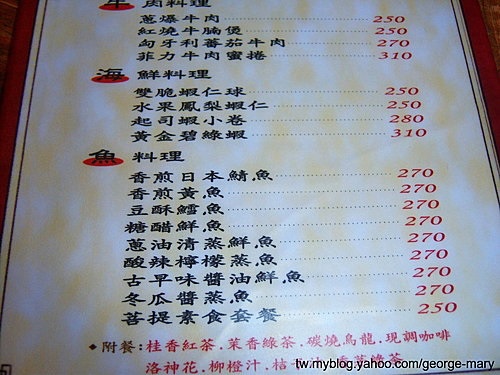 牛肉料理
蔥爆牛肉 250
紅燒牛腩煲 250
匈牙利蕃茄牛肉 270
菲力牛肉蜜捲 310
海鮮料理
雙脆蝦仁球 250
水果鳳梨蝦仁 250
起司蝦小卷 280
黃金碧綠蝦 310
魚料理
香煎日本鯖魚 270
香煎黃魚 270
豆酥鱈魚 270
糖醋鮮魚 270
蔥油清蒸鮮魚 270
酸辣檸檬蒸魚 270
古早味醬油鮮魚 270
冬瓜醬蒸魚 270
菩提素食套餐 250
◆附餐:桂香紅茶.茉香綠茶.碳燒烏龍.現調咖啡
洛神花.柳橙汁.桔
tw.myblog.yahoo.com/george-mary